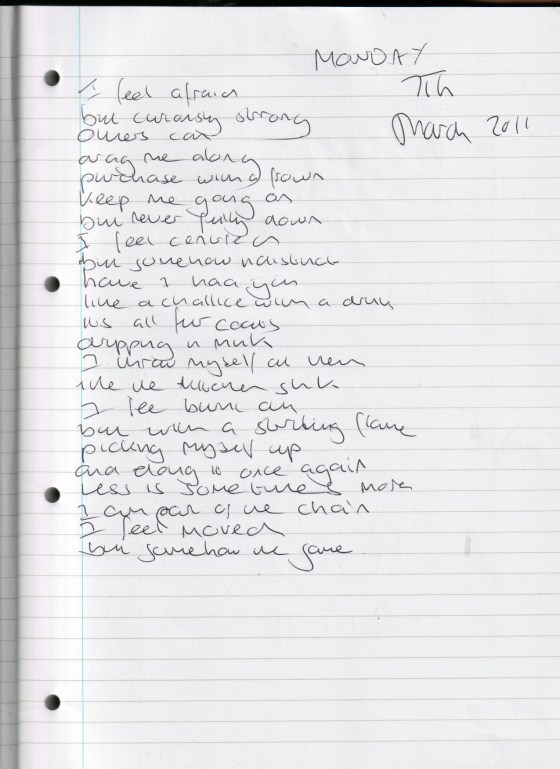 MONDAY
7th
March 2011
I feel afraid
but curiously strong
others can
drag me along
purchase with a frown
keep me going on
but never fully down
I feel
but somehow
have I had you
like a challice with a drink
its all fur coats
dripping in mink
I throw myself at them
like the kitchen sink
I feel burnt out
but with a flame
picking myself up
and doing it once again
Less is sometimes more
I am part of the chain
I feel moved
but somehow the same